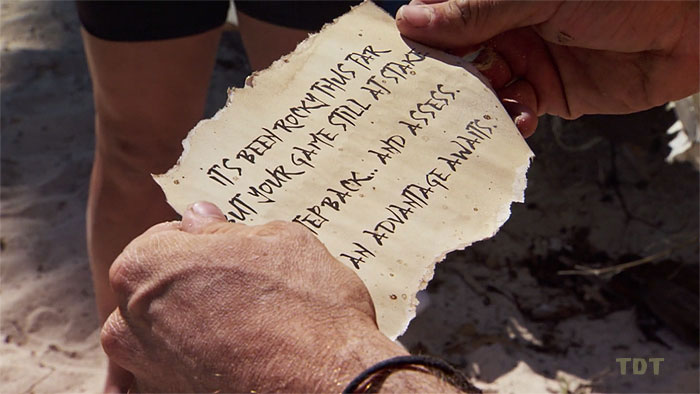 IT'S BEEN ROCKY THUS FAR
BUT YOUR GAME STILL AT STAKE
STEP BACK.. AND ASSESS.
AN ADVANTAGE AWAITS.
TDT